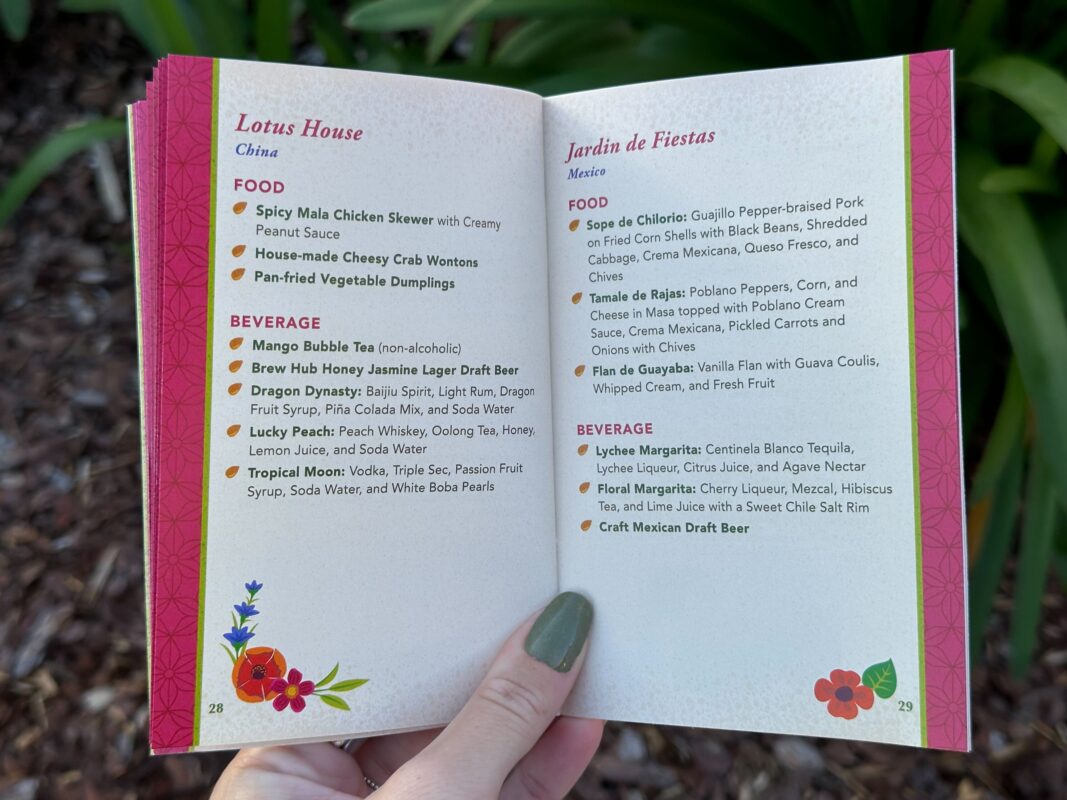 Lotus House
China
FOOD
Spicy Mala Chicken Skewer with Creamy
Peanut Sauce
House-made Cheesy Crab Wontons
Pan-fried Vegetable Dumplings
BEVERAGE
Mango Bubble Tea (non-alcoholic)
Brew Hub Honey Jasmine Lager Draft Beer
Dragon Dynasty: Baijiu Spirit, Light Rum, Dragon
Fruit Syrup, Piña Colada Mix, and Soda Water
Lucky Peach: Peach Whiskey, Oolong Tea, Honey,
Lemon Juice, and Soda Water
Tropical Moon: Vodka, Triple Sec, Passion Fruit
Syrup, Soda Water, and White Boba Pearls
28
Jardin de Fiestas
Mexico
FOOD
Sope de Chilorio: Guajillo Pepper-braised Pork
on Fried Corn Shells with Black Beans, Shredded
Cabbage, Crema Mexicana, Queso Fresco, and
Chives
Tamale de Rajas: Poblano Peppers, Corn, and
Cheese in Masa topped with Poblano Cream
Sauce, Crema Mexicana, Pickled Carrots and
Onions with Chives
Flan de Guayaba: Vanilla Flan with Guava Coulis,
Whipped Cream, and Fresh Fruit
BEVERAGE
Lychee Margarita: Centinela Blanco Tequila,
Lychee Liqueur, Citrus Juice, and Agave Nectar
Floral Margarita: Cherry Liqueur, Mezcal, Hibiscus
Tea, and Lime Juice with a Sweet Chile Salt Rim
Craft Mexican Draft Beer
29